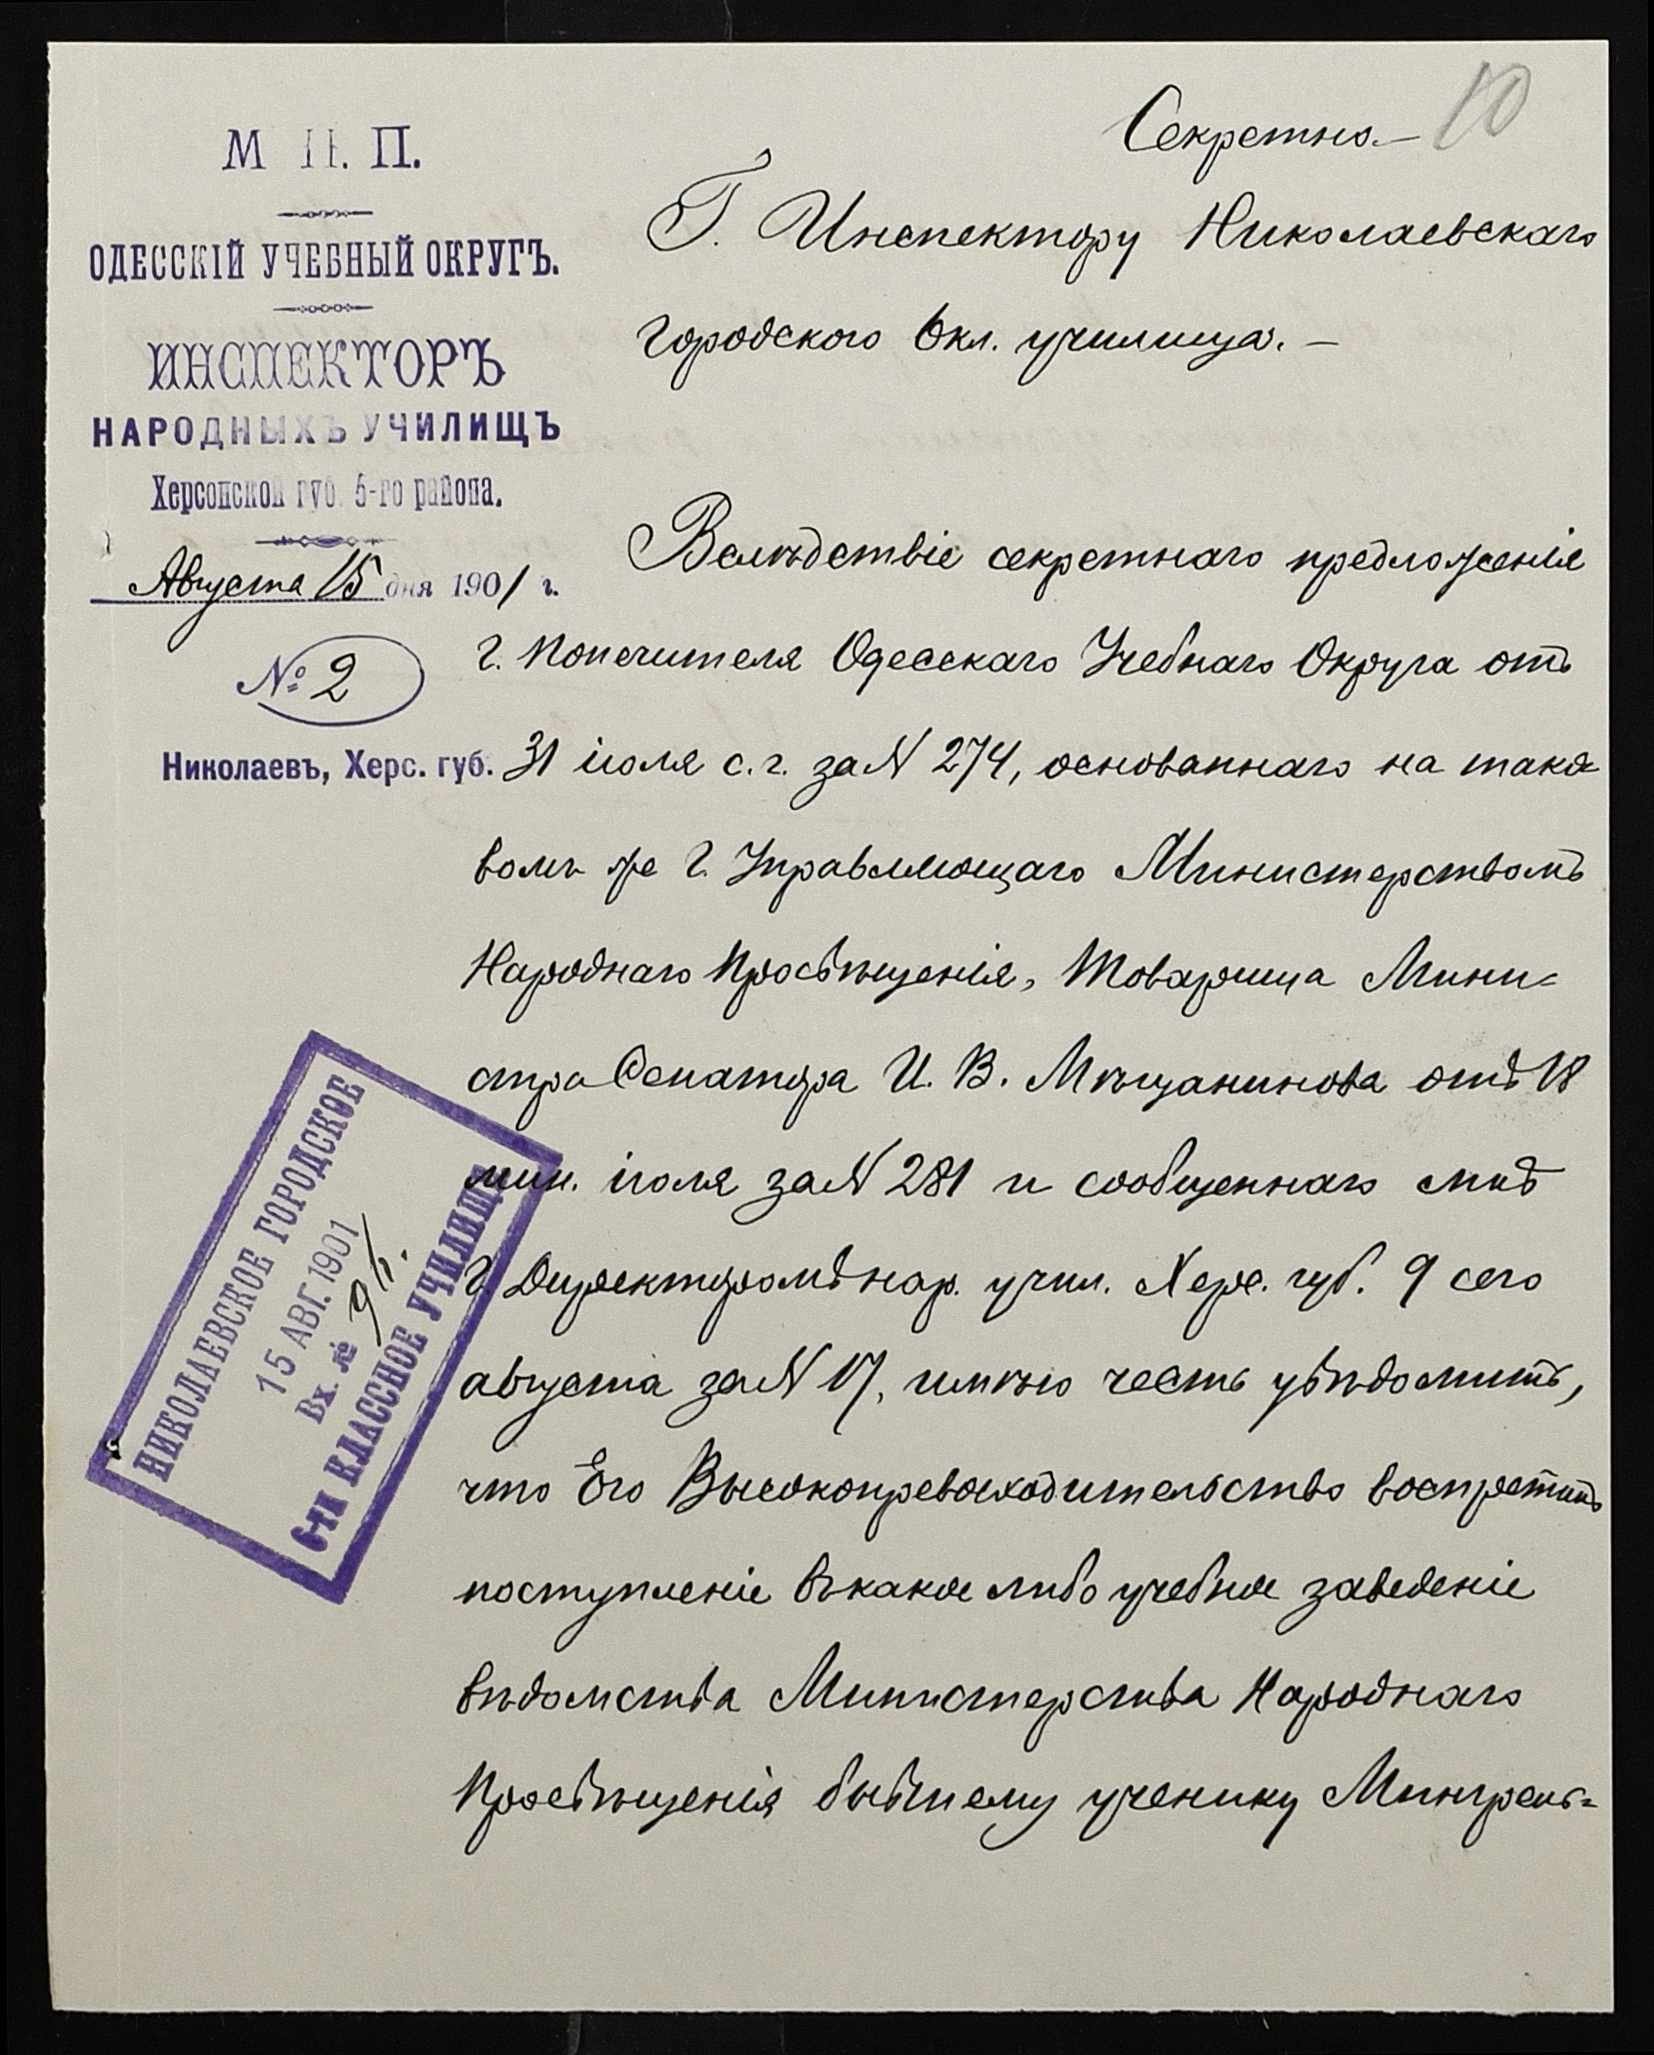 Секретно.—
10
М Н. П.
ОДЕССКІЙ УЧЕБНЫЙ ОКРУГЪ.
ИНСПЕКТОРЪ
НАРОДНЫХЪ УЧИЛИЩЪ
Херсонской губ. 5-го района.
Августа 15 дня 1901 г.
№ 2
Николаевъ, Херс. губ.
Г. Инспектору Николаевскаго
Городского 6кл. училища.—
Вслѣдствіе секретнаго предложенія
г. Попечителя Одесскаго Учебнаго Округа отъ
31 іюля с. г. за N 274, основаннаго на тако-
вомъ же Г. Управляющаго Министерствомъ
Народнаго Просвѣщенія, Товарища Мини=
стра Сенатора И. В. Мѣщанинова отъ 18
мин. іюля за N 281 и сообщеннаго мнѣ
Г. Директоромъ нар. учил. Херс. губ. 9 сего
августа за N 17, имѣю честь увѣдомить,
что Его Высокопревосходительство воспретилъ
поступленіе въ какое либо учебное заведеніе
вѣдомства Министерства Народнаго
Просвѣщенія бывшему ученику Мингрель=
НИКОЛАЕВСКОЕ ГОРОДСКОЕ
15 АВГ. 1901
Вх. №
6-ТИ КЛАССНОЕ УЧИЛИЩЕ